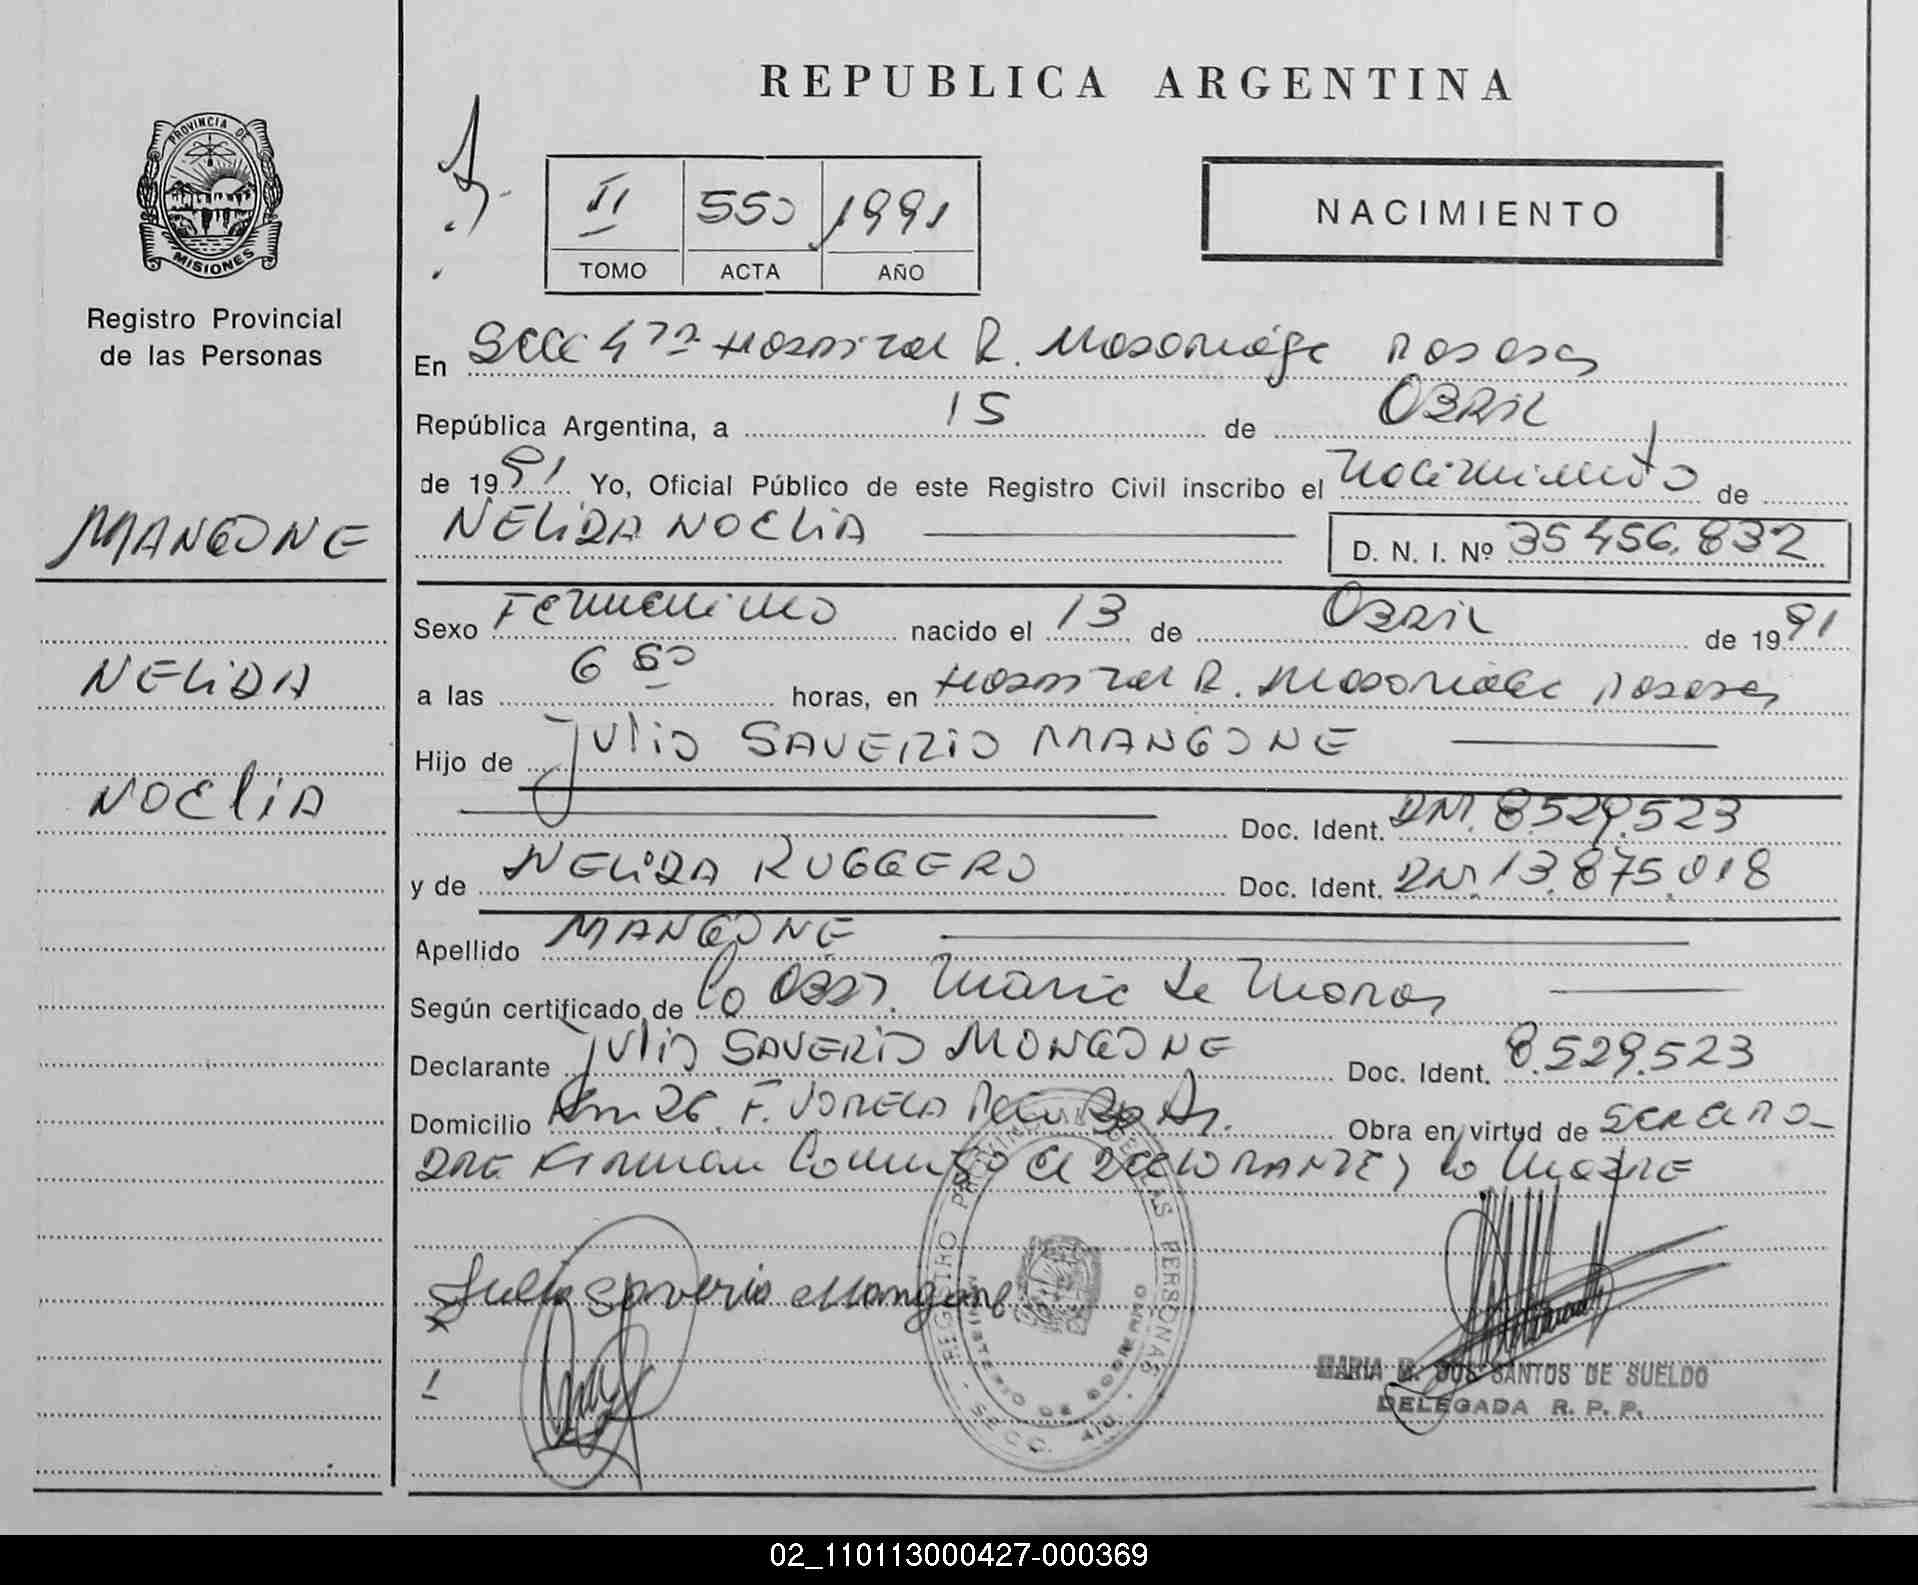 REPUBLICA ARGENTINA
PROVINCIA DE
MISIONES
Registro Provincial
de las Personas
II 550 1991
TOMO ACTA AÑO
NACIMIENTO
En Secc 4ta Hospital R. Madariaga Posadas
República Argentina, a 15 de Abril
de 1991 Yo, Oficial Público de este Registro Civil inscribo el nacimiento de
NELIDA NOELIA D. N. I. Nº 35456.832
MANGONE
NELIDA
NOELIA
Sexo Femenino nacido el 13 de Abril de 1991
a las 6 50 horas, en Hospital R. Madariaga Posadas
Hijo de Julio SAVERIO MANGONE
Doc. Ident. DNI. 8.529.523
y de NELIDA RUGGERO Doc. Ident. DNI. 13.875.018
Apellido MANGONE
Según certificado de la Obst. Maria de
Declarante Julio SAVERIO MANGONE Doc. Ident. 8.529.523
Domicilio Km 26 F. VARELA Bs As. Obra en virtud de ser el PA-
DRE Firman Conmigo el declarante y la Madre
Julio Saverio Mangone
REGISTRO PROVINCIAL DE LAS PERSONAS
MINISTERIO DE GOBIERNO
SECC. 4ta
MARIA M. DOS SANTOS DE SUELDO
DELEGADA R. P. P.
02_110113000427-000369